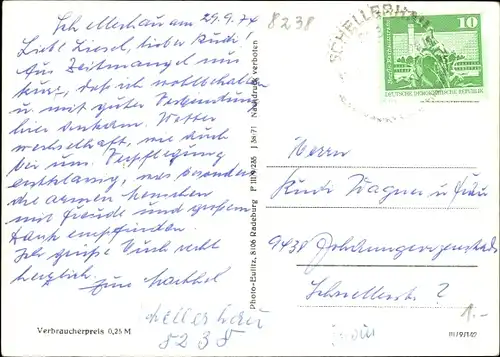 Schellerhau am 29.9.74
Liebe Liesel, lieber Rudi!
Aus Zeitmangel nur
kurz, daß ich wohlbehalten
u. mit guter Verbindung
hier ankam. Wetter
wechselhaft, wie auch
bei uns. Verpflegung
erstklassig, was besonders
die armen Menschen
mit Freude und großem
Dank empfinden.
Ich grüße Euch recht
herzlich.
Verbraucherpreis 0,25 M
Schellerhau
5238
Photo-Eulitz, 8106 Radeburg P III/9/235 Nachdruck verboten
8238
SCHELLERHAU
10
DEUTSCHE DEMOKRATISCHE REPUBLIK
Herrn
Rudi Wagner und Frau
9438 Johanngeorgenstadt
Schillerstr. 2
1.-